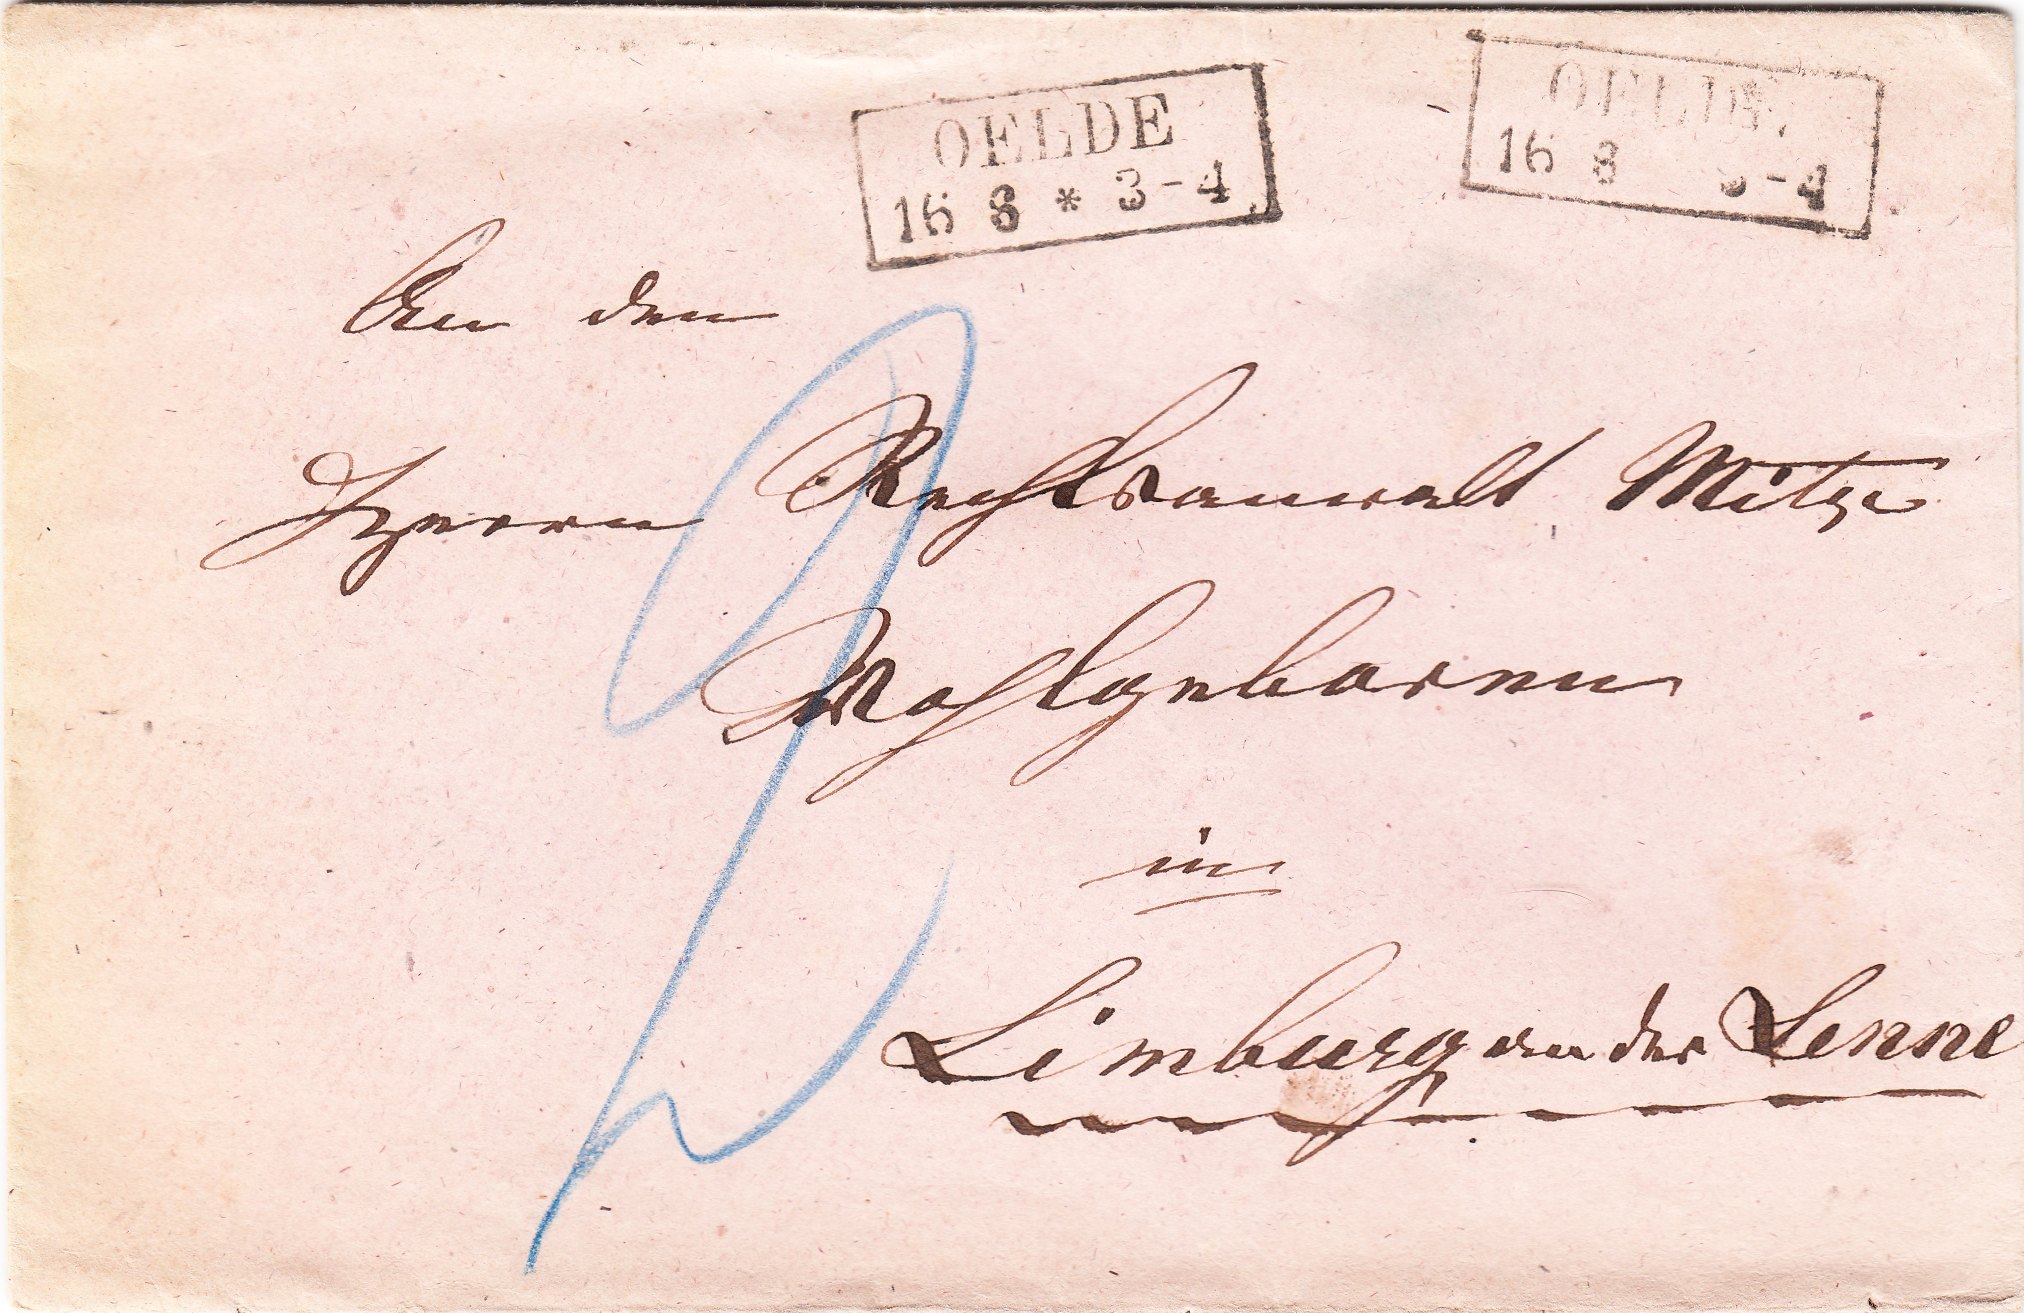 OELDE
16 8 * 3-4
OELDE
16 8 3-4
An den
Herrn Rechtsanwalt Mitze
Wohlgeboren
in
Limburg an der Lenne
2